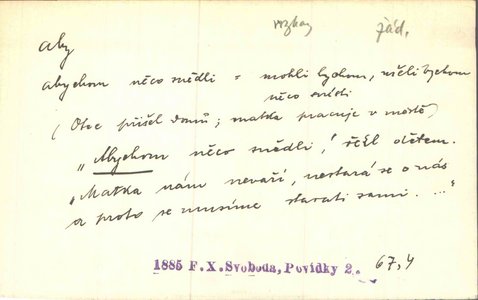 rozkaz žád.
aby
abychom něco snědli = mohli bychom, měli bychom
něco sníst
(Otec přišel domů; matka pracuje v městě)
„Abychom něco snědli,! řekl dětem.
„Matka nám nevaří, nestará se o nás
a proto se musíme starati sami. ..."
1885 F.X.Svoboda, Povídky 2. 67,4